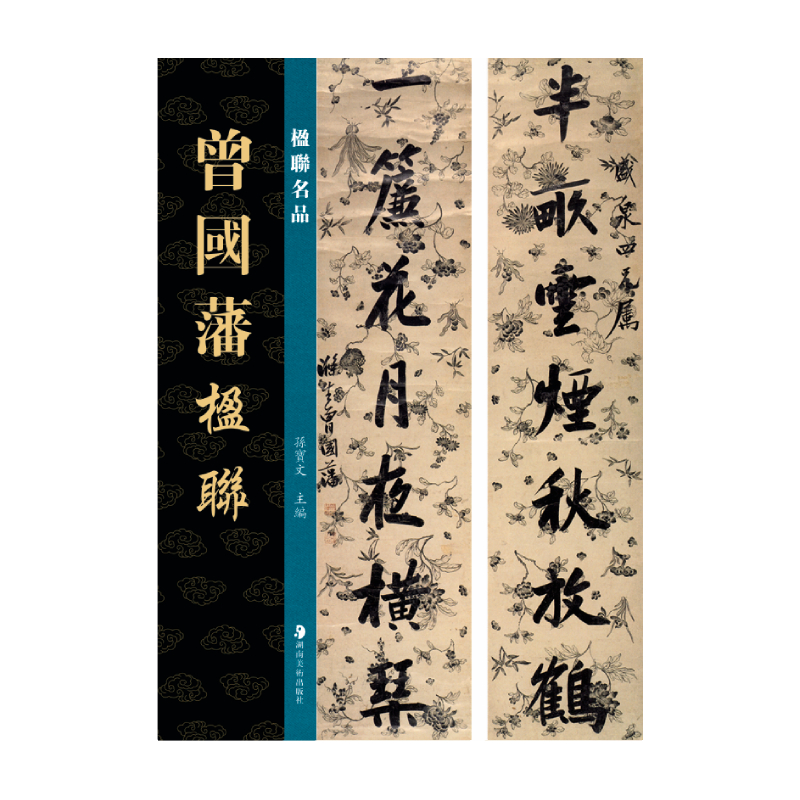 曾國藩楹聯
楹聯名品
孫寶文 主編
湖南美術出版社
盛泉四兄屬
半畝雲煙秋放鶴
一簾花月夜橫琴
滌生曾國藩